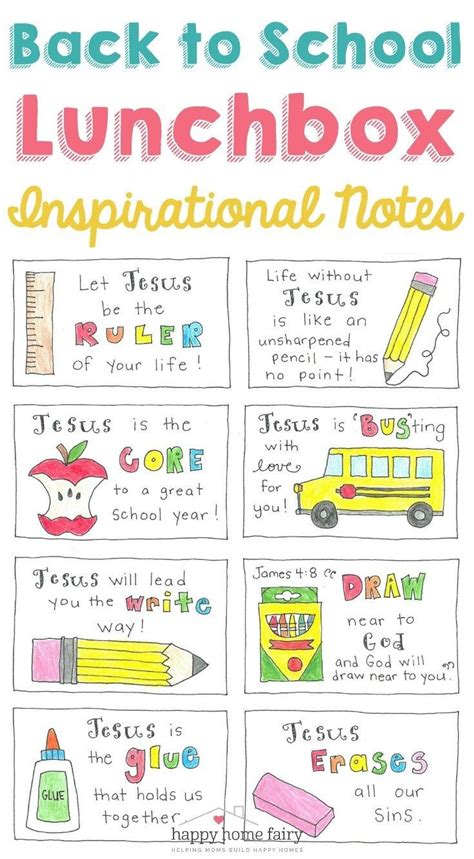 Back to School
Lunchbox
Inspirational Notes
Let Jesus
be the
RULER
of your life!
Life without
Jesus
is like an
unsharpened
pencil - it has
no point!
Jesus is the
CORE
to a great
school year!
Jesus is 'BUS'ting
with
love
for
you!
Jesus will lead
you the write
way!
James 4:8
DRAW
near to
God
and God will
draw near to you.
Jesus is
the glue
that holds us
together.
GLUE
Jesus
Erases
all our
Sins.
happy home fairy
HELPING MOMS BUILD HAPPY HOMES